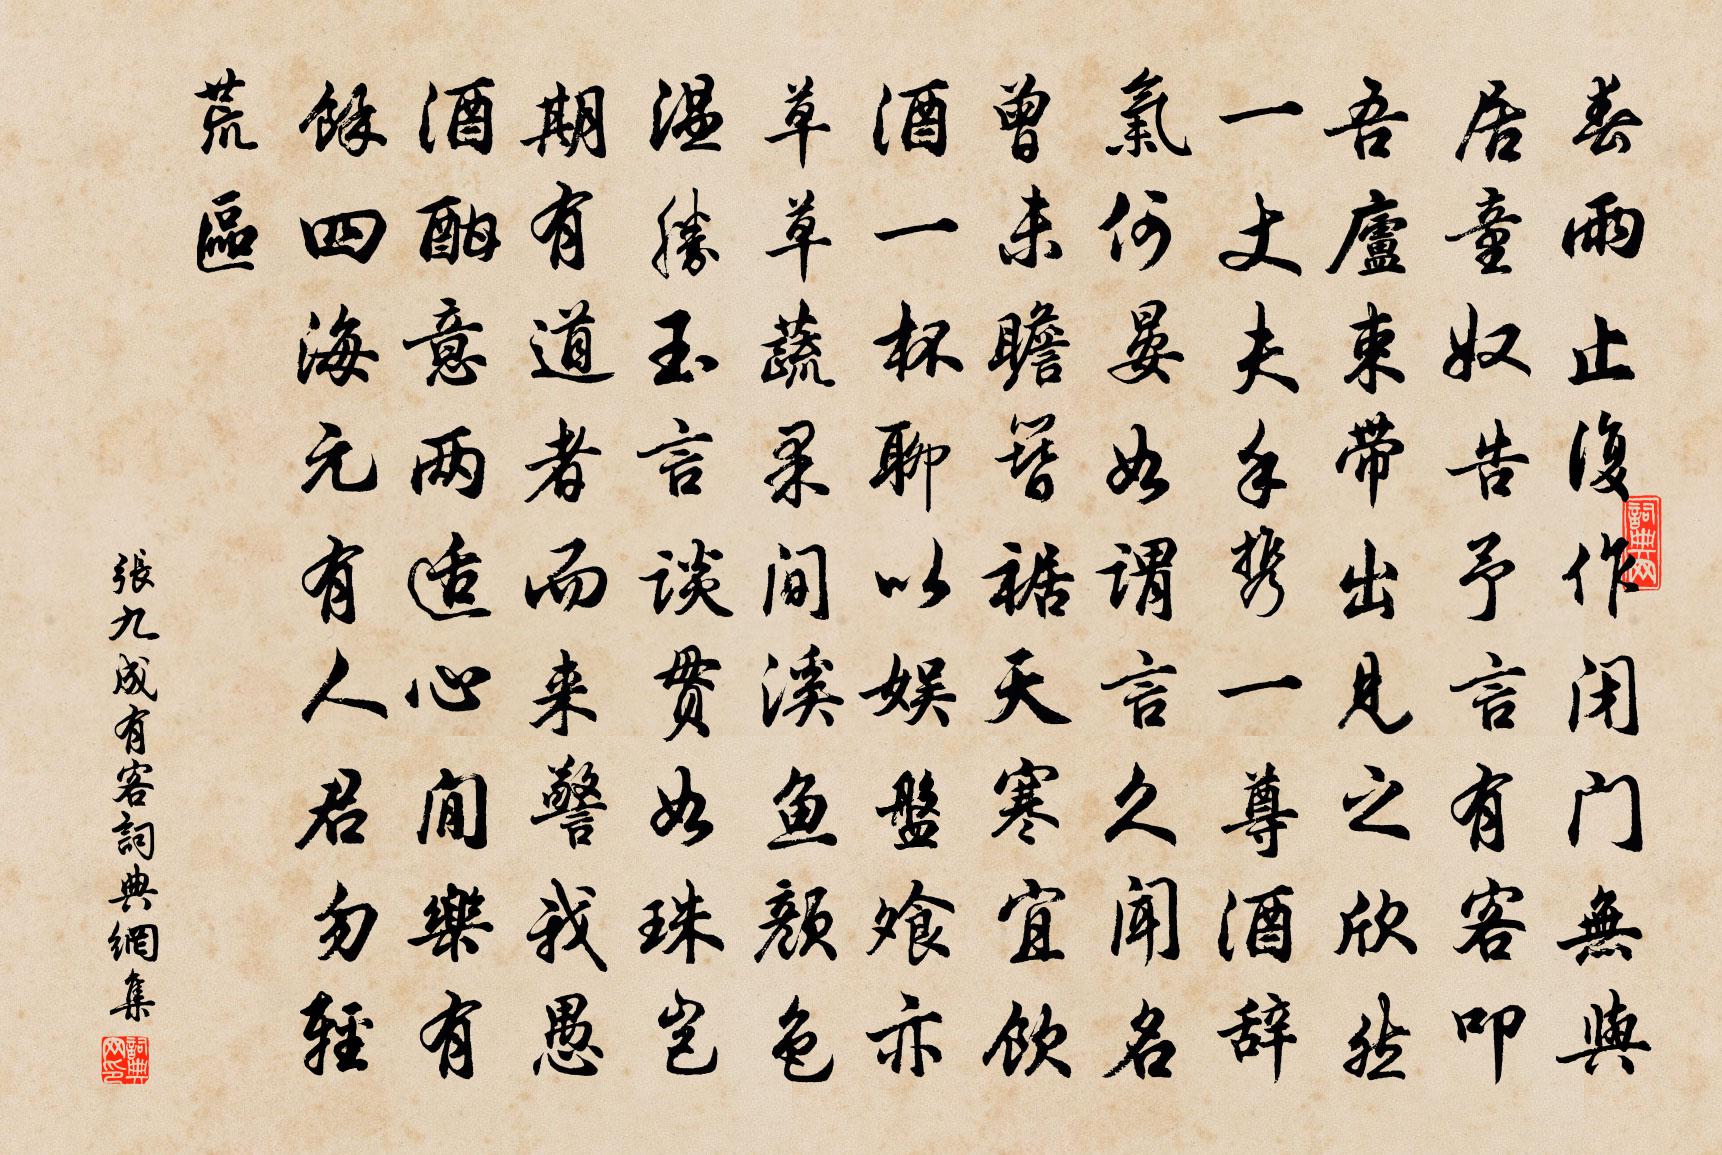 春雨止復作闭门無與
居童奴告予言有客叩
吾廬束带出見之欣然
一丈夫手携一尊酒辞
氣何晏如谓言久闻名
曾未瞻簪裾天寒宜飲
酒一杯聊以娱盤飧亦
草草蔬果间溪鱼颜色
温勝玉言谈贯如珠岂
期有道者而来警我愚
酒酣意两适心间樂有
餘四海元有人君勿輕
荒區
張九成有客詞典網集
詞典网
詞典网印